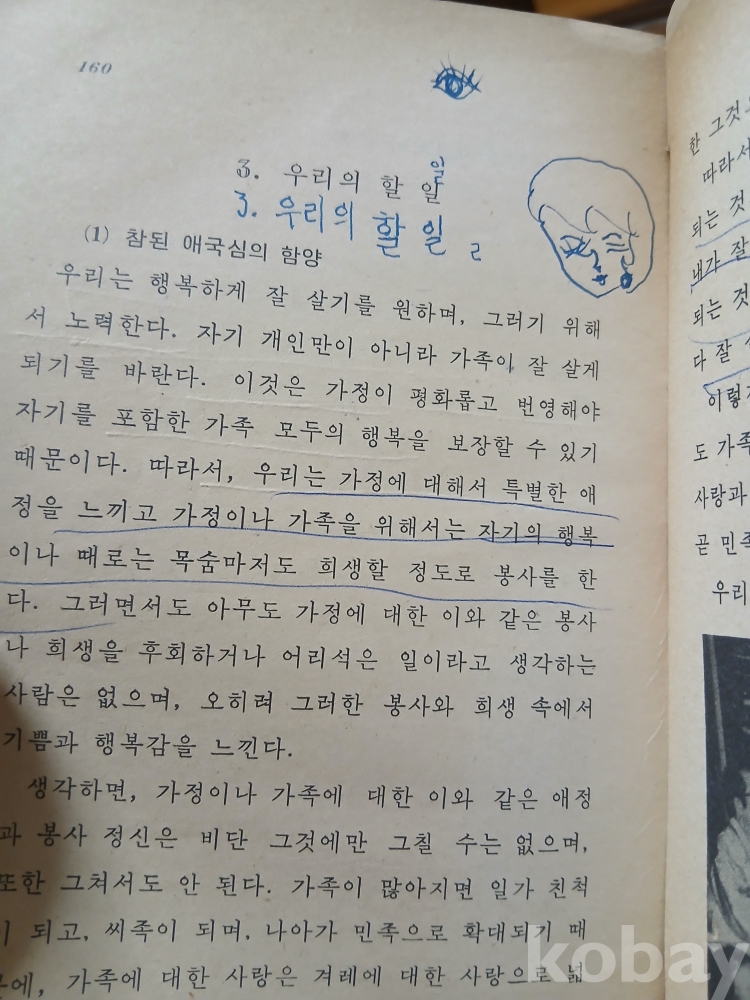 160
3. 우리의 할 일
일
3. 우리의 할 일 ㄹ
(1) 참된 애국심의 함양
우리는 행복하게 잘 살기를 원하며, 그러기 위해
서 노력한다. 자기 개인만이 아니라 가족이 잘 살게
되기를 바란다. 이것은 가정이 평화롭고 번영해야
자기를 포함한 가족 모두의 행복을 보장할 수 있기
때문이다. 따라서, 우리는 가정에 대해서 특별한 애
정을 느끼고 가정이나 가족을 위해서는 자기의 행복
이나 때로는 목숨마저도 희생할 정도로 봉사를 한
다. 그러면서도 아무도 가정에 대한 이와 같은 봉사
나 희생을 후회하거나 어리석은 일이라고 생각하는
사람은 없으며, 오히려 그러한 봉사와 희생 속에서
기쁨과 행복감을 느낀다.
생각하면, 가정이나 가족에 대한 이와 같은 애정
과 봉사 정신은 비단 그것에만 그칠 수는 없으며,
또한 그쳐서도 안 된다. 가족이 많아지면 일가 친척
이 되고, 씨족이 되며, 나아가 민족으로 확대되기 때
문에, 가족에 대한 사랑은 겨레에 대한 사랑으로 넓
한 그것
따라서
되는 것
내가 잘
되는 것
다 잘
이렇
도 가족
사랑과
곧 민족
우리
kobay